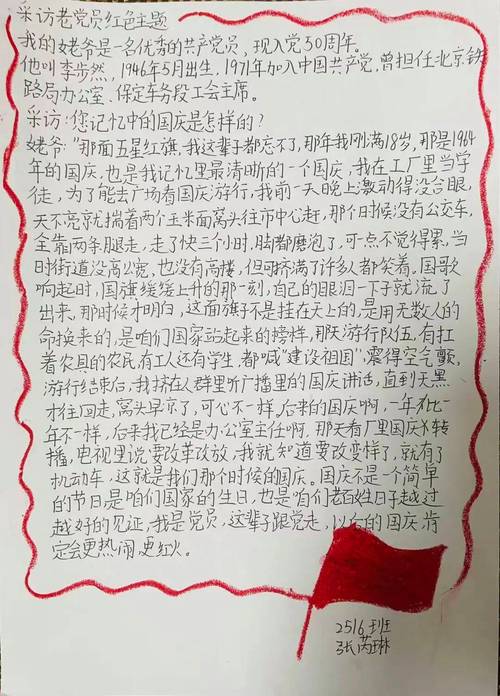 采访老党员红色主题
我的姥爷是一名优秀的共产党员，现入党50周年。
他叫李步然，1946年5月出生，1971年加入中国共产党，曾担任北京铁
路局办公室、保定车务段工会主席。
采访：您记忆中的国庆是怎样的？
姥爷："那面五星红旗，我这辈子都忘不了，那年我刚满18岁，那是1964
年的国庆，也是我记忆里最清晰的一个国庆，我在工厂里当学
徒，为了能去广场看国庆游行，我前一天晚上激动得没合眼，
天不亮就揣着两个玉米面窝头往市中心赶，那个时候没有公交车，
全靠两条腿走，走了快三个小时，脚都磨泡了，可一点不觉得累，当
时街道没高宽，也没有高楼，但可挤满了许多人都笑着。国歌
响起时，国旗缓缓上升的那一刻，自己的眼泪一下子就流了
出来，那时候才明白，这面旗子不是挂在天上的，是用无数人的
命换来的，是咱们国家站起来的榜样，那天游行队伍，有扛
着农具的农民，有工人还有学生，都喊"建设祖国"，震得空气颤，
游行结束后，我挤在人群里听广播里的国庆讲话，直到天黑
才往回走，窝头早凉了，可心不一样，后来的国庆啊，一年比一
年不一样，后来我已经是办公室主任啊，那天看厂里国庆转
播，电视里说要改革改放，我就知道要改变样了，就有了
机动车，这就是我们那个时候的国庆。国庆不是一个简单
的节日是咱们国家的生日，也是咱们老百姓日子越过
越好的见证，我是党员，这辈子跟党走，以后的国庆，肯
定会更热闹，更红火。
2516班
张芮琳